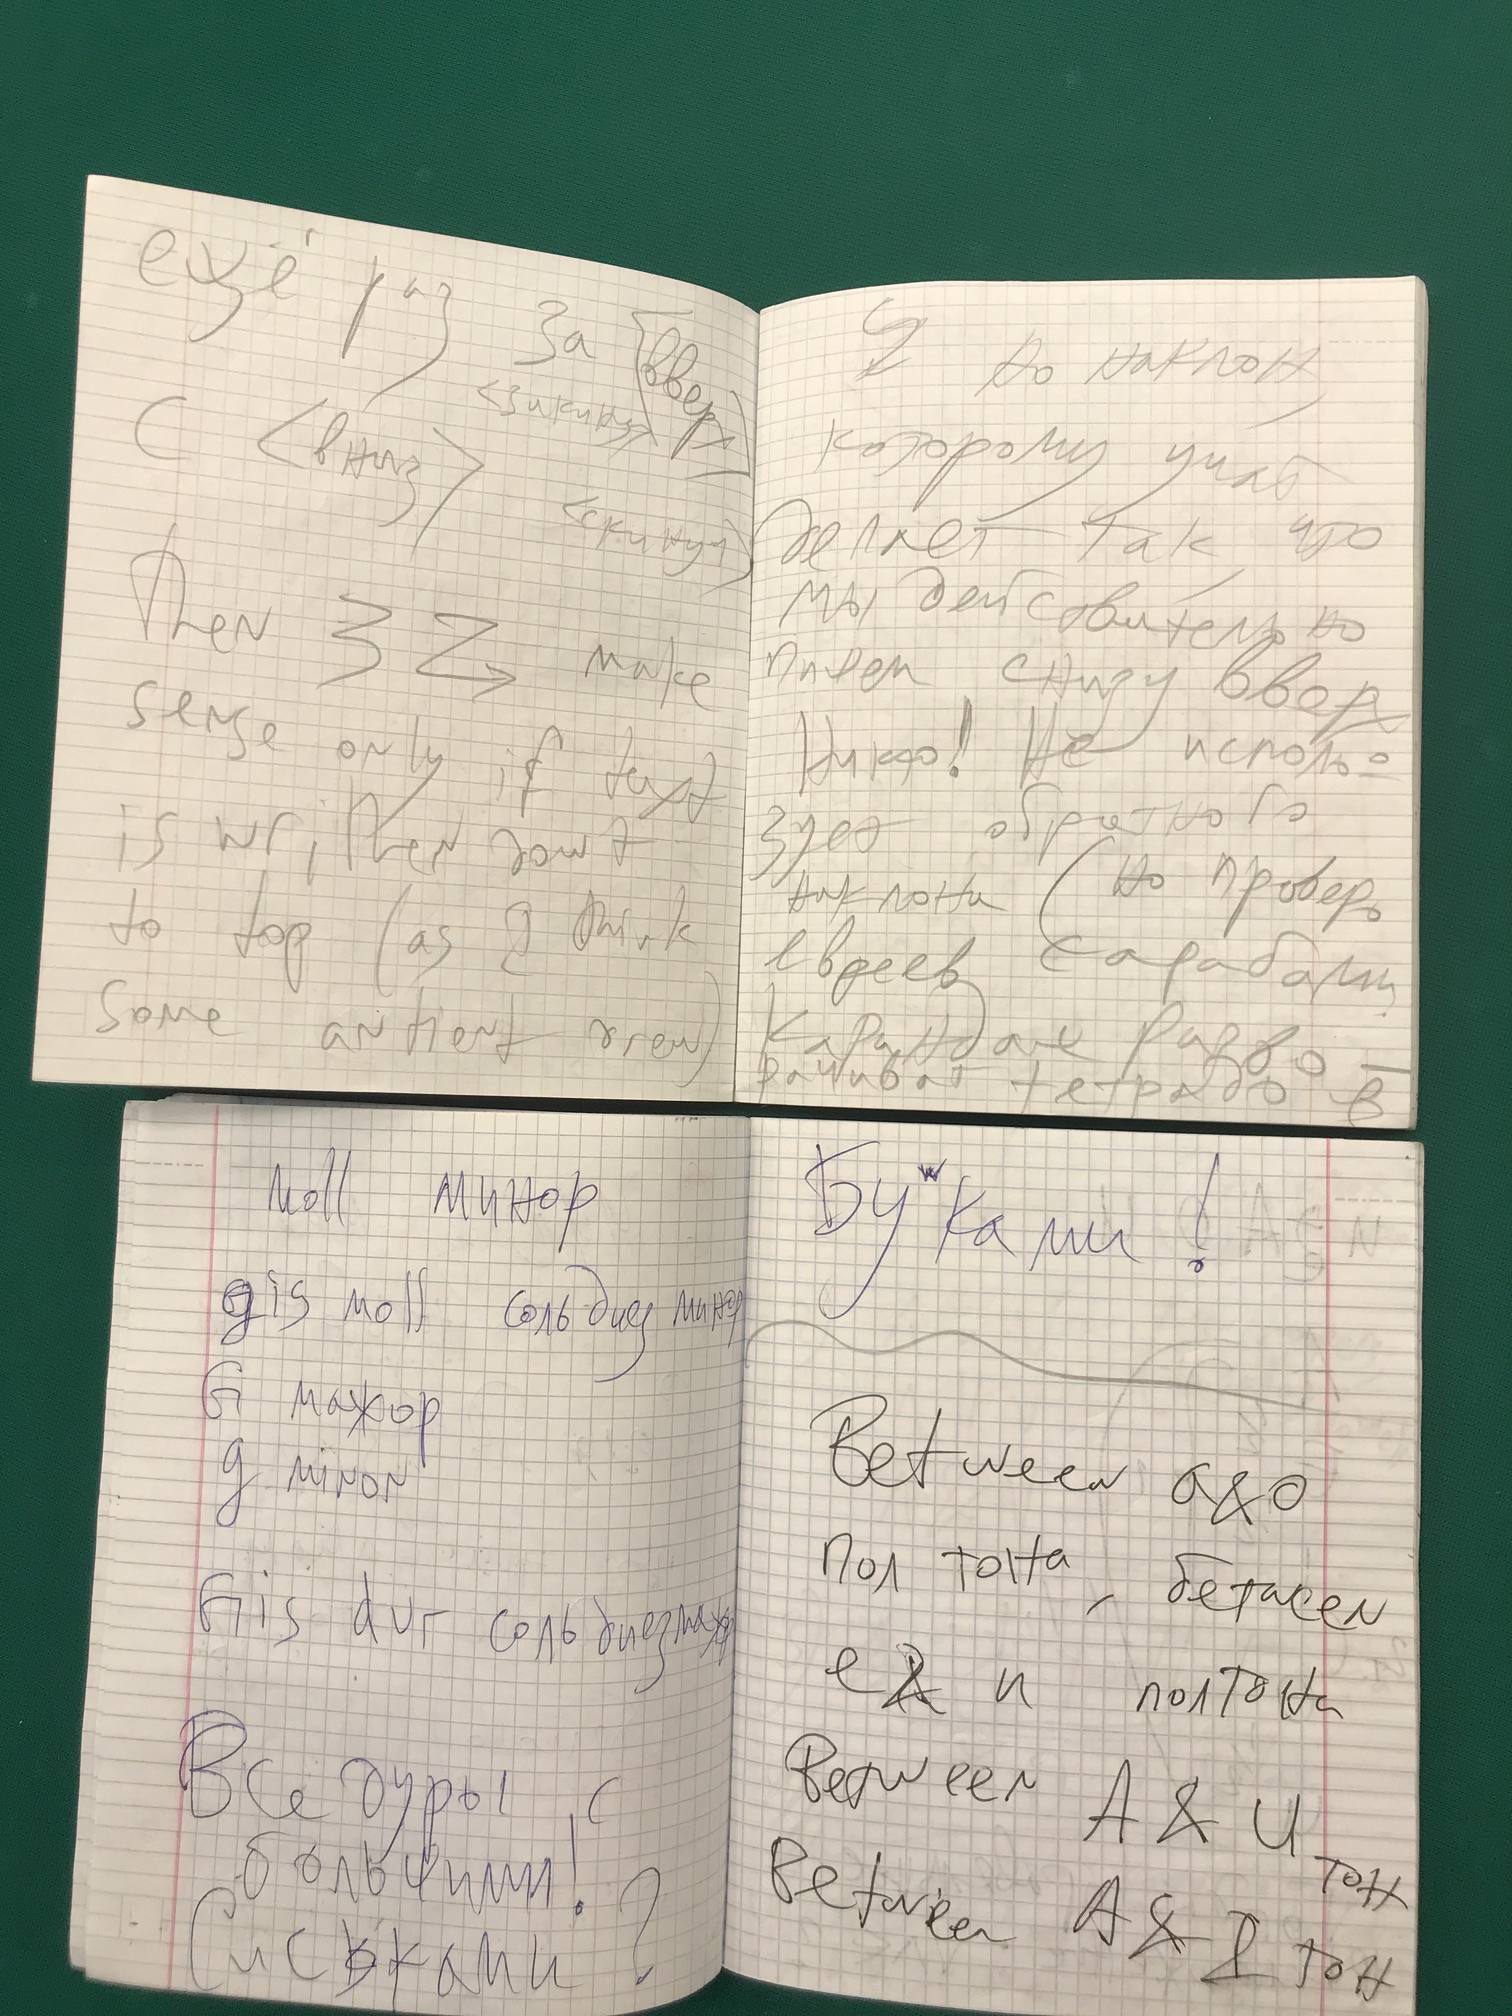 ещё раз за [вверх]
<закинуя>
с <вниз>
<скинуя>
Then З Z make
sense only if text
is written down
to top (as I think
some antient
но наклон
которому учат
делает так что
мы действительно
пишем снизу вверх
Никто! Не исполь=
зует обратного
наклона (но проверь
евреев
карандаш разво-
рачивая тетрадь в
moll минор
gis moll соль диез минор
G мажор
g minor
Gis dur соль диез мажор
Все дуры с
большими!
Сиськами?
Буквами!
Between а&о
пол тона, бетвеен
е& и полтона
Between А & И
тон
Between А & I тон